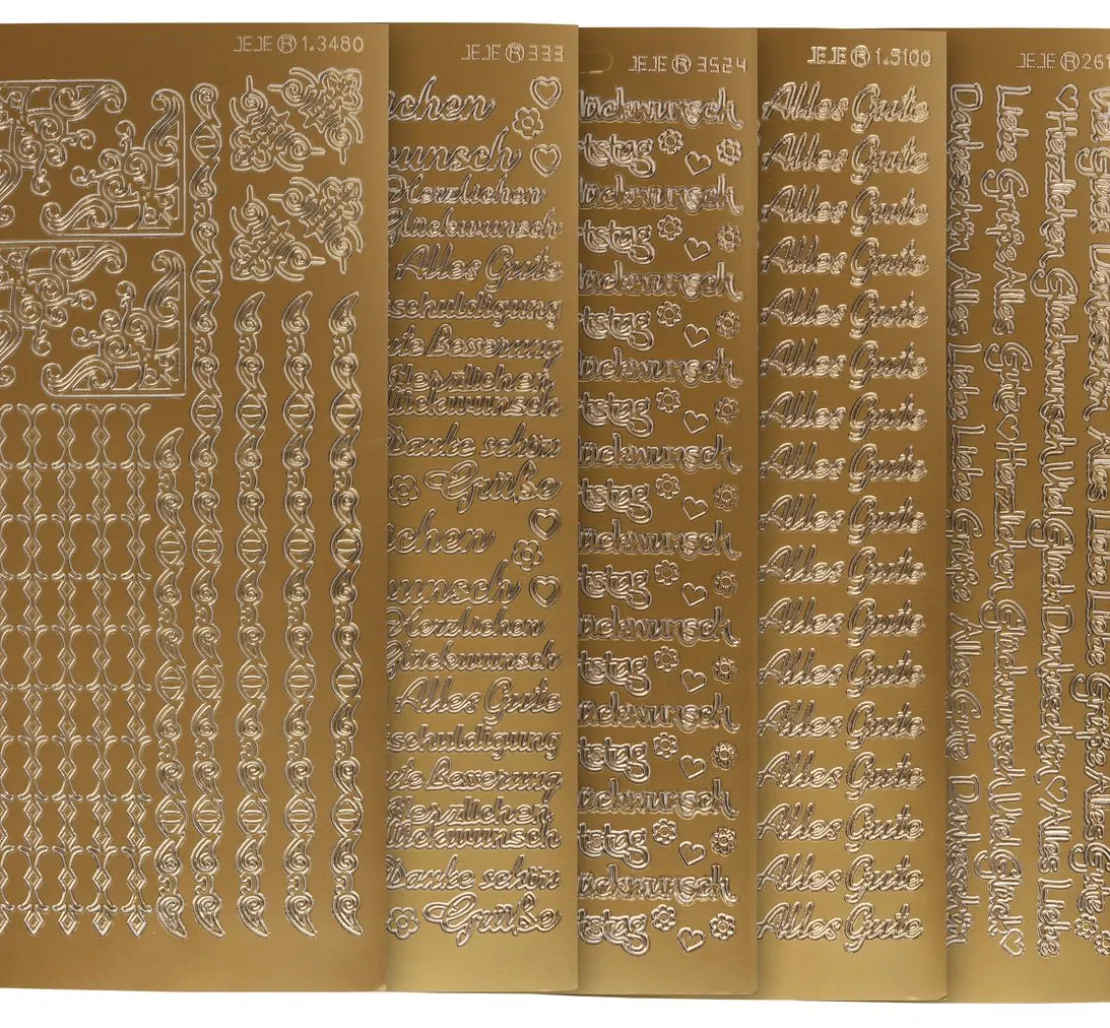 JEJE ® 1.3480
JEJE ® 333
chen
wunsch
Herzlichen
Glückwunsch
Alles Gute
schuldigung
ute Besserung
Herzlichen
Glückwunsch
Danke schön
Grüße
chen
wunsch
Herzlichen
Glückwunsch
Alles Gute
schuldigung
ute Besserung
Herzlichen
Glückwunsch
Danke schön
Grüße
JEJE ® 3524
lückwunsch
tstag
lückwunsch
tstag
lückwunsch
tstag
lückwunsch
tstag
lückwunsch
tstag
lückwunsch
tstag
lückwunsch
tstag
lückwunsch
tstag
lückwunsch
tstag
lückwunsch
tstag
JEJE ® 1.5100
Alles Gute
Alles Gute
Alles Gute
Alles Gute
Alles Gute
Alles Gute
Alles Gute
Alles Gute
Alles Gute
Alles Gute
Alles Gute
Alles Gute
Alles Gute
Alles Gute
Alles Gute
Alles Gute
Alles Gute
JEJE ® 261
Liebe Grüße Alles Liebe Alles
Herzlichen Glückwunsch Viel Glück Dankeschön Alles Liebe
Liebe Grüße Alles Gute Herzlichen Glückwunsch Viel Glück
Dankeschön Alles Liebe Liebe Grüße Alles Gute Dankeschön